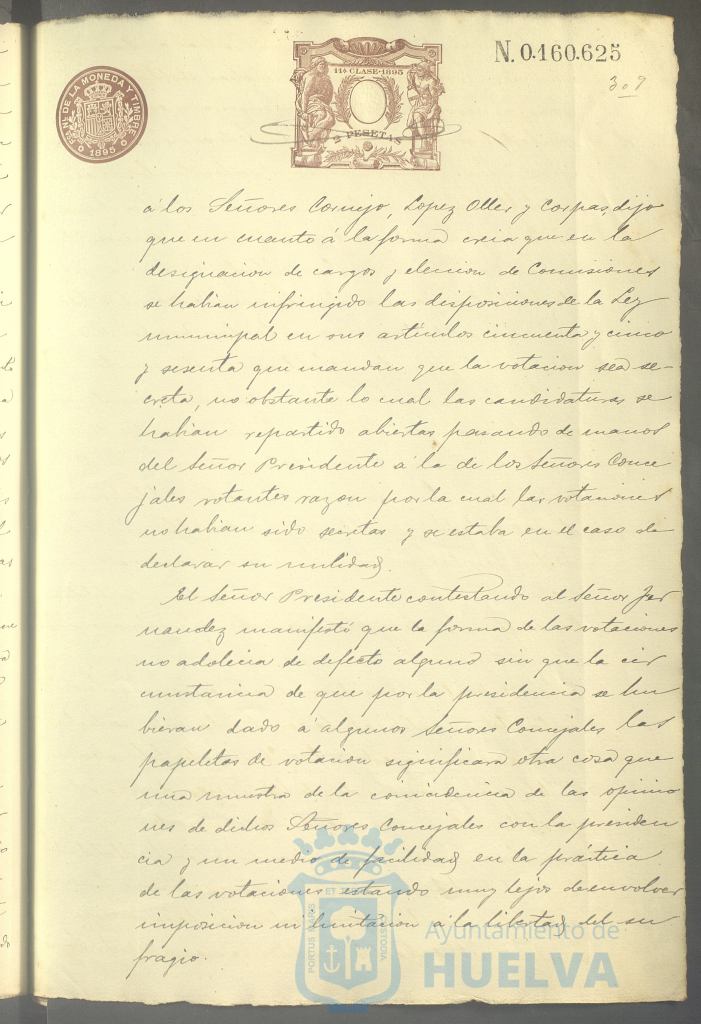 N. 0.160.625
FA. NL. DE LA MONEDA Y TIMBRE
1895
11ª CLASE-1895
2 PESETAS
á los Señores Cornejo, Lopez Oller y Corpas, dijo
que en cuanto á la forma creia que en la
designacion de cargos y eleccion de Comisiones
se habian infringido las disposiciones de la Ley
municipal en sus artículos cincuenta y cinco
y sesenta que mandan que la votacion sea se-
creta, no obstante lo cual las candidaturas se
habian repartido abiertas pasando de manos
del Señor Presidente á la de los Señores Conce
jales votantes razon por la cual las votaciones
no habian sido secretas y se estaba en el caso de
declarar su nulidad.
El Señor Presidente contestando al Señor Fer
nandez manifestó que la forma de las votaciones
no adolecia de defecto alguno sin que la cir
cunstancia de que por la presidencia se hu
bieran dado á algunos Señores Concejales las
papeletas de votacion significara otra cosa que
una muestra de la coincidencia de las opinio
nes de dichos Señores Concejales con la presiden
cia y un medio de facilidad en la práctica
de las votaciones estando muy lejos de envolver
imposicion ni limitacion á la libertad del su
fragio.
PORTUS MARIS ET TERRAE CUSTODIA
Ayuntamiento de
HUELVA